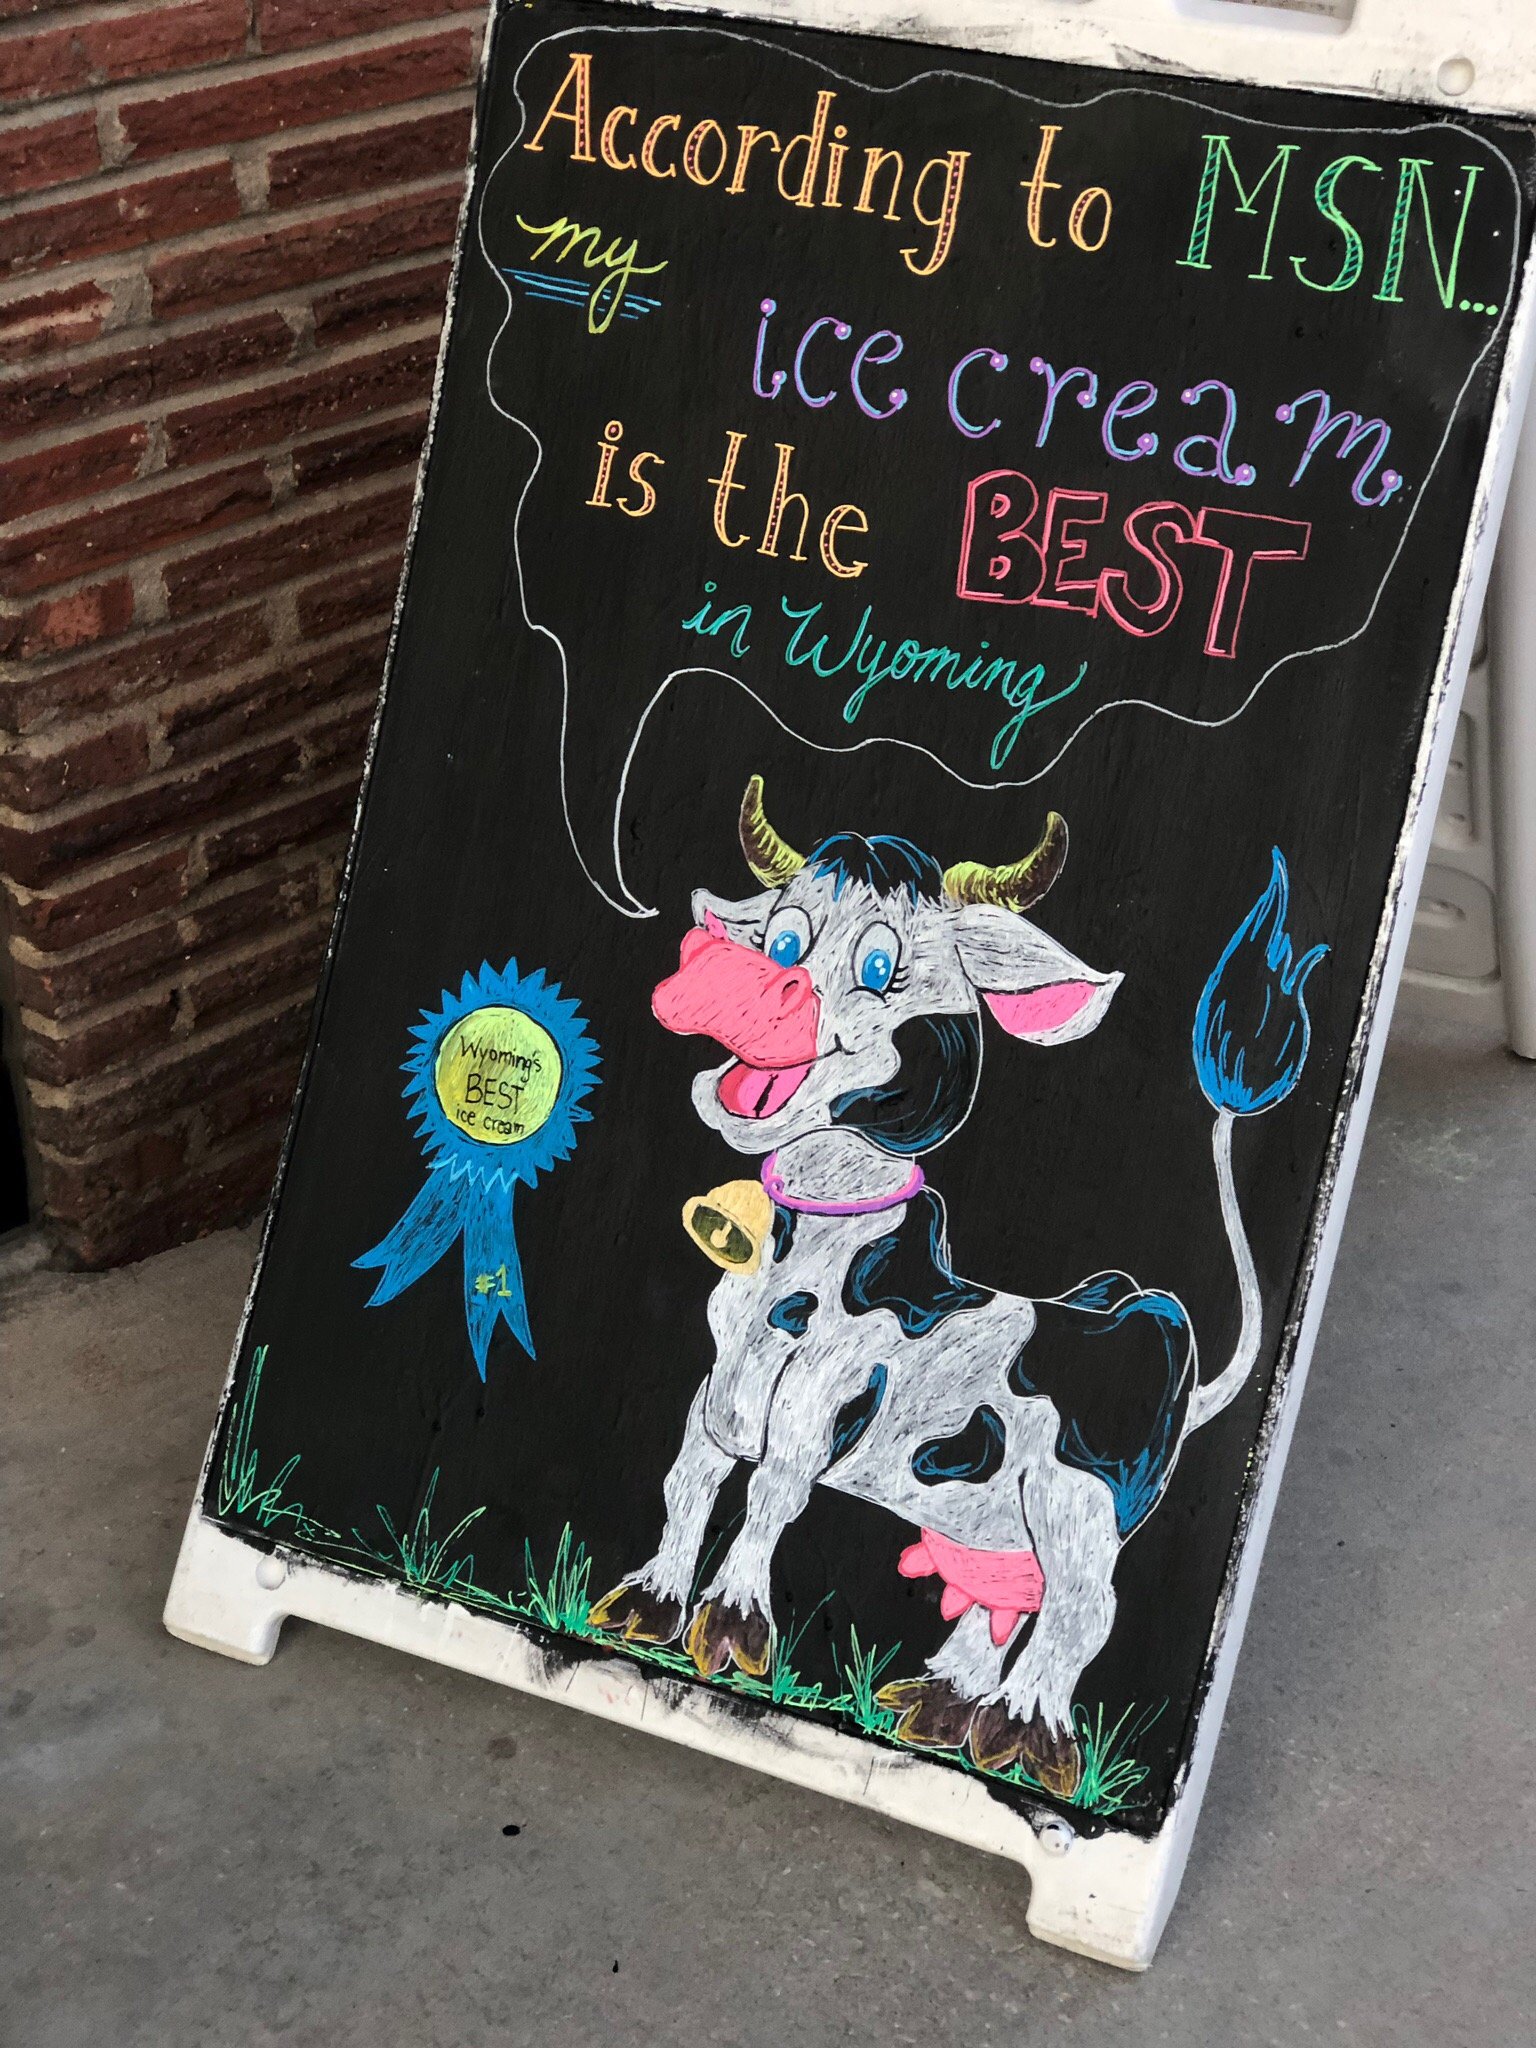 According to MSN...
my
ice cream
is the BEST
in Wyoming
Wyoming's
BEST
ice cream
#1